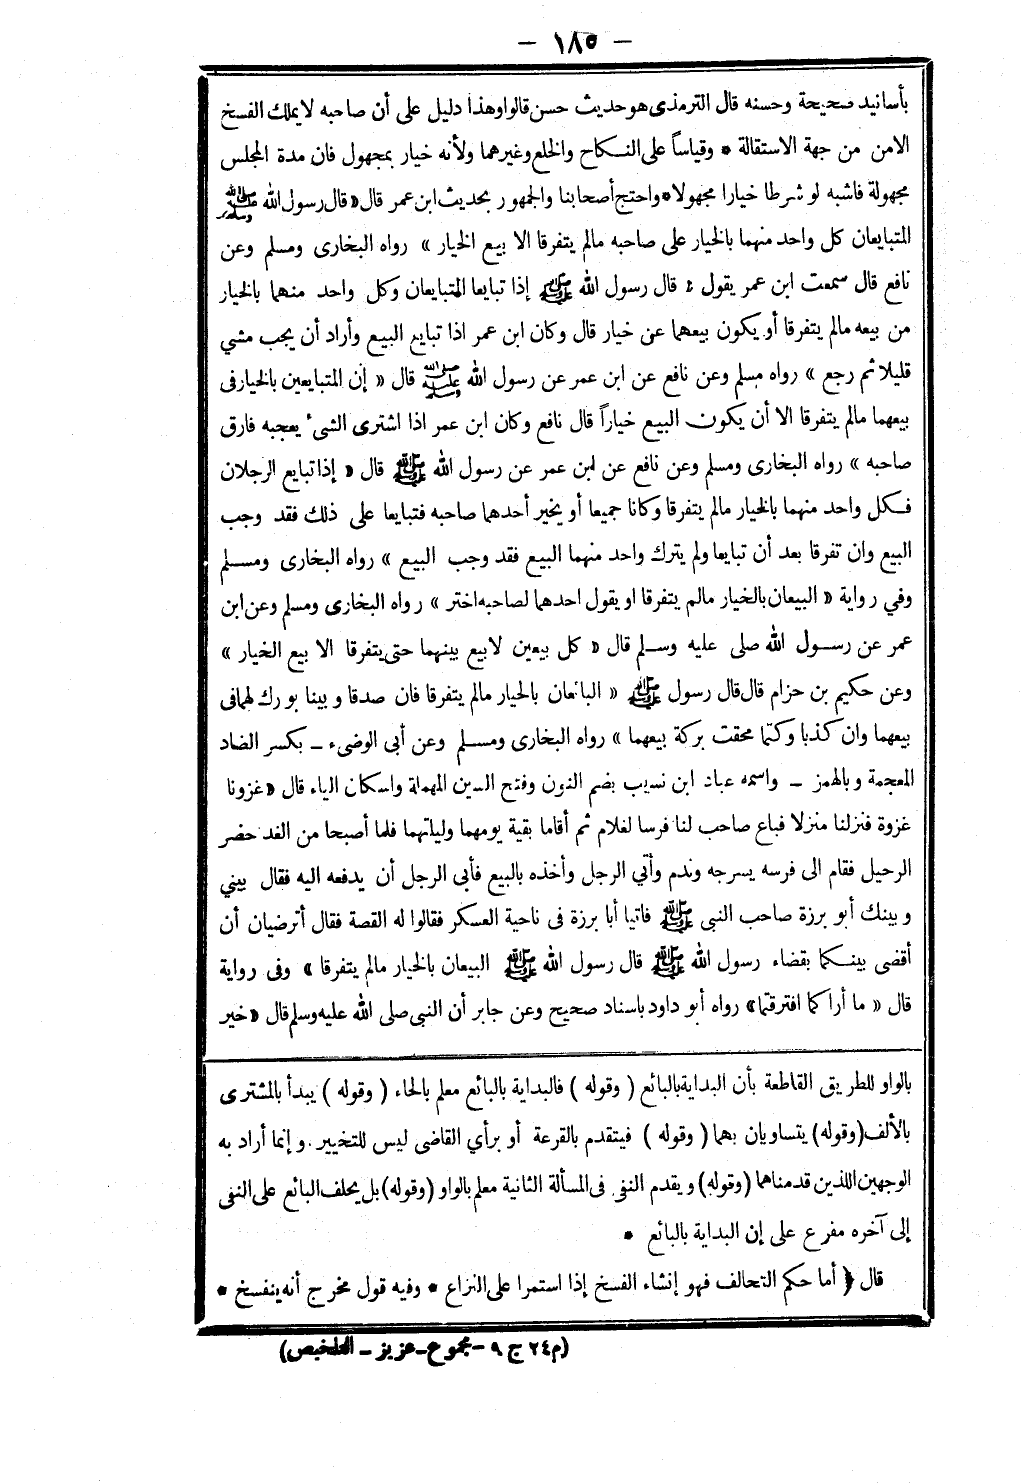 — ١٨٥ —
بأسانيد صحيحة وحسنه قال الترمذى هو حديث حسن قالوا وهذا دليل على أن صاحبه لا يملك الفسخ
الا من من جهة الاستقالة * وقياساً على النكاح والخلع وغيرهما ولأنه خيار بمجهول فان مدة المجلس
مجهولة فاشبه لو شرطا خيارا مجهولا * واحتج أصحابنا والجمهور بحديث ابن عمر قال « قال رسول الله ﷺ
المتبايعان كل واحد منهما بالخيار على صاحبه مالم يتفرقا الا بيع الخيار » رواه البخارى ومسلم وعن
نافع قال سمعت ابن عمر يقول : قال رسول الله ﷺ إذا تبايعا المتبايعان وكل واحد منهما بالخيار
من بيعه مالم يتفرقا أو يكون بيعهما عن خيار قال وكان ابن عمر اذا تبايع البيع وأراد أن يجب مشي
قليلا ثم رجع » رواه مسلم وعن نافع عن ابن عمر عن رسول الله ﷺ قال « إن المتبايعين بالخيار فى
بيعهما مالم يتفرقا الا أن يكون البيع خياراً قال نافع وكان ابن عمر اذا اشترى الشىء يعجبه فارق
صاحبه » رواه البخارى ومسلم وعن نافع عن ابن عمر عن رسول الله ﷺ قال « إذا تبايع الرجلان
فكل واحد منهما بالخيار مالم يتفرقا وكانا جميعا أو يخير أحدهما صاحبه فتبايعا على ذلك فقد وجب
البيع وان تفرقا بعد أن تبايعا ولم يترك واحد منهما البيع فقد وجب البيع » رواه البخارى ومسلم
وفي رواية « البيعان بالخيار مالم يتفرقا او يقول احدهما لصاحبه اختر » رواه البخارى ومسلم وعن ابن
عمر عن رسول الله صلى عليه وسلم قال « كل بيعين لا بيع بينهما حتى يتفرقا الا بيع الخيار »
وعن حكيم بن حزام قال قال رسول ﷺ « البائعان بالخيار مالم يتفرقا فان صدقا وبينا بورك لهما فى
بيعهما وان كذبا وكتما محقت بركة بيعهما » رواه البخارى ومسلم وعن أبى الوضىء – بكسر الضاد
المعجمة وبالهمز – واسمه عباد ابن نسيب بضم النون وفتح السين المهملة واسكان الياء قال « غزونا
غزوة فنزلنا منزلا فباع صاحب لنا فرسا لغلام ثم أقاما بقية يومهما وليلتهما فلما أصبحا من الغد حضر
الرحيل فقام الى فرسه يسرجه وندم وأتي الرجل وأخذه بالبيع فأبى الرجل أن يدفعه اليه فقال بيني
وبينك أبو برزة صاحب النبى ﷺ فاتيا أبا برزة فى ناحية العسكر فقالوا له القصة فقال أترضيان أن
أقضى بينكما بقضاء رسول الله ﷺ قال رسول الله ﷺ البيعان بالخيار مالم يتفرقا » وفى رواية
قال « ما أراكما افترقتما» رواه أبو داود باسناد صحيح وعن جابر أن النبى صلى الله عليه وسلم قال « خير
بالواو للطريق القاطعة بأن البداية بالبائع ( وقوله ) فالبداية بالبائع معلم بالحاء ( وقوله ) يبدأ بالمشترى
بالألف (وقوله) يتساويان بهما ( وقوله ) فيتقدم بالقرعة أو برأي القاضى ليس للتخيير. وإنما أراد به
الوجهين اللذين قدمناهما (وقوله) ويقدم النفى فى المسألة الثانية معلم بالواو (وقوله) بل يحلف البائع على النفى
إلى آخره مفرع على إن البداية بالبائع *
قال ﴿ أما حكم التحالف فهو إنشاء الفسخ إذا استمرا على النزاع * وفيه قول مخرج أنه ينفسخ *
(م ٢٤ ج ٩ – مجموع – عزيز – التلخيص)